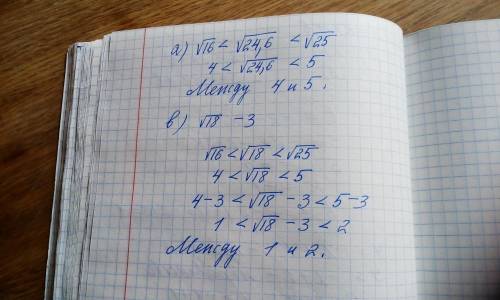 а) √16 < √24,6 < √25
4 < √24,6 < 5
Между 4 и 5.
в) √18 - 3
√16 < √18 < √25
4 < √18 < 5
4-3 < √18 - 3 < 5-3
1 < √18 - 3 < 2
Между 1 и 2.